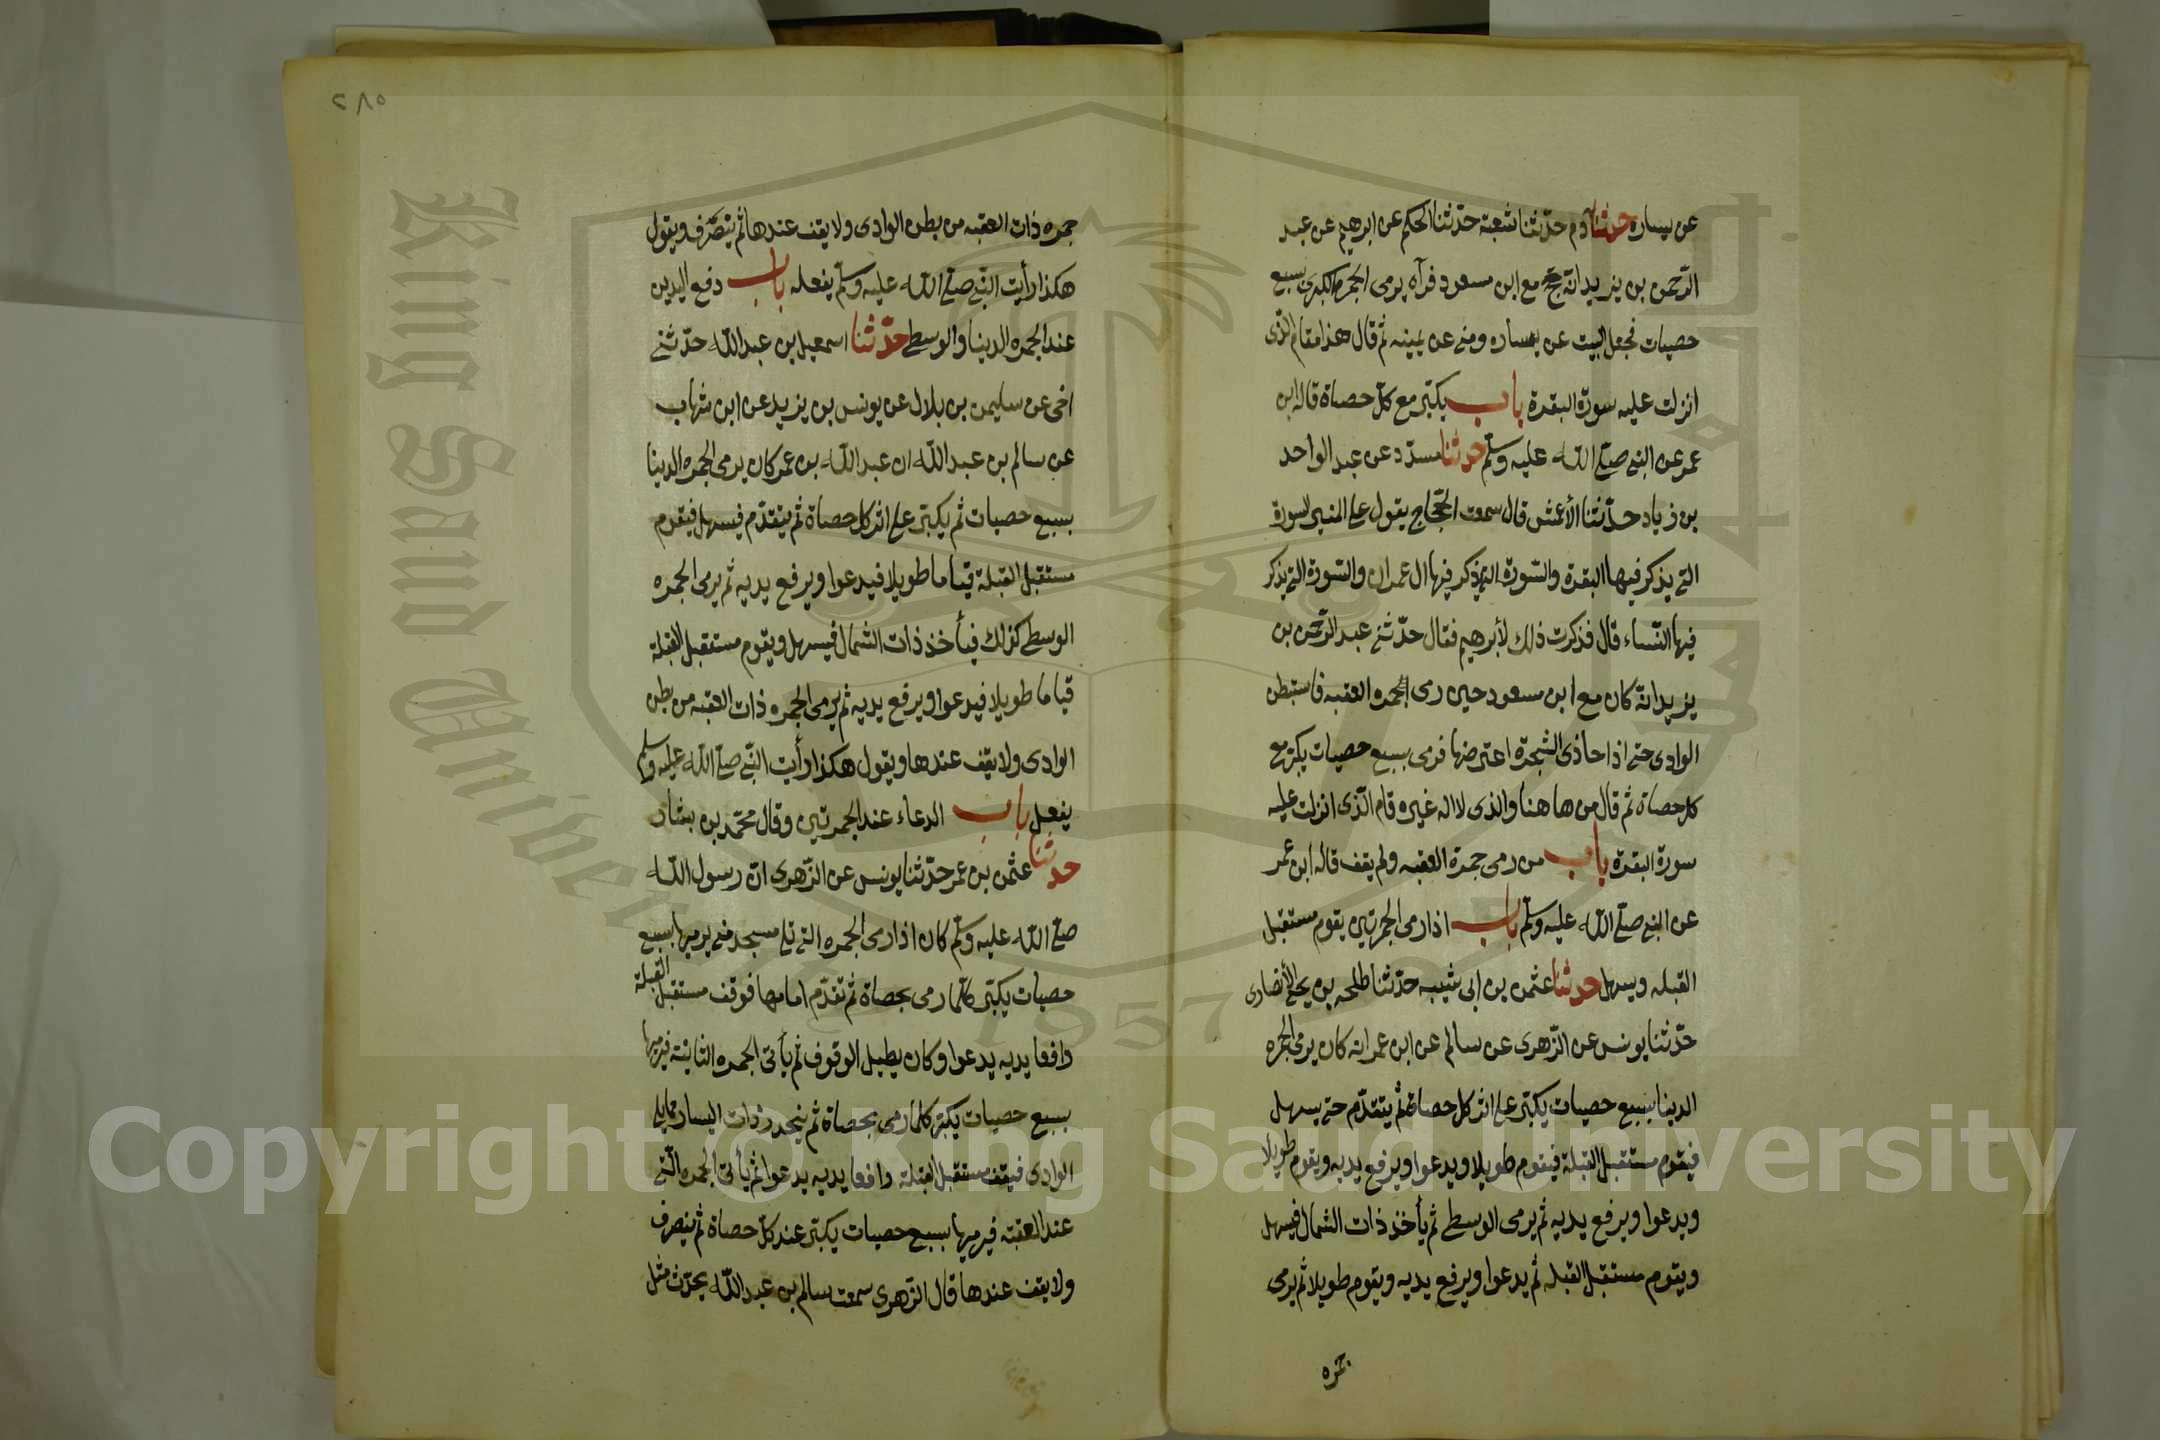 عن يساره حدثنا آدم حدّثنا شعبة حدّثنا الحكم عن ابرهيم عن عبد
الرّحمن بن يزيد انّه حجّ مع ابن مسعود فرآه يرمى الجمرة الكبرى بسبع
حصيات فجعل البيت عن يساره ومنى عن يمينه ثم قال هذا مقام الّذى
انزلت عليه سورة البقرة باب يكبّر مع كلّ حصاة قاله ابن
عمر عن النبى صلّى الله عليه وسلّم حدثنا مسدّد عن عبد الواحد
بن زياد حدّثنا الأعمش قال سمعت الحجّاج يقول على المنبر السورة
التى يذكر فيها البقرة والسّورة التى يذكر فيها ال عمران والسّورة التى يذكر
فيها النّساء قال فذكرت ذلك لأبرهيم فقال حدّثنى عبد الرّحمن بن
يزيد انّه كان مع ابن مسعود حين رمى الجمره العقبه فاستبطن
الوادى حتى اذا حاذى الشّجرة اعترضها فرمى بسبع حصيات يكبّر مع
كل حصاة ثم قال من هاهنا والذى لا اله غيره قام الّذى انزلت عليه
سورة البقرة باب من رمى جمرة العقبه ولم يقف قاله ابن عمر
عن النبى صلّى الله عليه وسلّم باب اذا رمى الجمرتين يقوم مستقبل
القبله ويسهل حدثنا عثمن بن ابى شيبه حدّثنا طلحه بن يحيى الأنصارى
حدّثنا يونس عن الزّهرى عن سالم عن ابن عمر انه كان يرمى الجمره
الدينا بسبع حصيات يكبّر على اثر كل حصاة ثم يتقدّم حتى يسهل
فيقوم مستقبل القبلة فيقوم طويلا ويدعوا ويرفع يديه ويقوم طويلا
ويدعوا ويرفع يديه ثم يرمى الوسطى ثم يأخذ ذات الشمال فيسهل
ويقوم مستقبل القبله ثم يدعوا ويرفع يديه ويقوم طويلا ثم يرمى
جمره
٢٨٥
جمره ذات العقبه من بطن الوادى ولا يقف عندها ثم ينصرف ويقول
هكذا رأيت النّبى صلّى الله عليه وسلّم يفعله باب رفع اليدين
عند الجمره الدينا والوسطى حدّثنا اسمعيل بن عبد الله حدّثنى
اخى عن سليمن بن بلال عن يونس بن يزيد عن ابن شهاب
عن سالم بن عبد الله ان عبد الله بن عمر كان يرمى الجمره الدينا
بسبع حصيات ثم يكبّر على اثر كل حصاة ثم يتقدّم فيسهل فيقوم
مستقبل القبلة قياما طويلا فيدعوا ويرفع يديه ثم يرمى الجمره
الوسطى كذلك فيأخذ ذات الشمال فيسهل ويقوم مستقبل القبلة
قياما طويلا فيدعوا ويرفع يديه ثم يرمى الجمره ذات العقبه من بطن
الوادى ولا يقف عندها ويقول هكذا رأيت النّبى صلّى الله عليه وسلّم
يفعل باب الدعاء عند الجمرتين وقال محمّد بن بشار
حدثنا عثمن بن عمر حدّثنا يونس عن الزّهرى انّ رسول الله
صلّى الله عليه وسلّم كان اذا رمى الجمره التى تلى مسجد منى يرميها بسبع
حصيات يكبّر كلّما رمى بحصاة ثم تقدّم امامها فوقف مستقبل القبلة
رافعا يديه يدعوا وكان يطيل الوقوف ثم يأتى الجمره الثانية فيرميها
بسبع حصيات يكبّر كلما رمى بحصاة ثم ينحدر ذات اليسار مما يلى
الوادى فيقف مستقبل القبلة رافعا يديه يدعوا ثم يأتى الجمره الّتى
عند العقبة فيرميها بسبع حصيات يكبّر عند كلّ حصاة ثم ينصرف
ولا يقف عندها قال الزّهرى سمعت سالم بن عبد الله يحدّث مثل
King Saud University
1957
Copyright © King Saud University